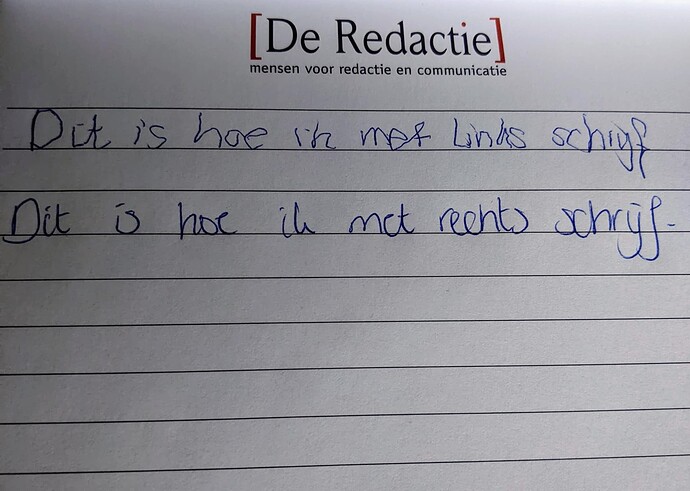 [De Redactie]
mensen voor redactie en communicatie
Dit is hoe ik met links schrijf
Dit is hoe ik met rechts schrijf.